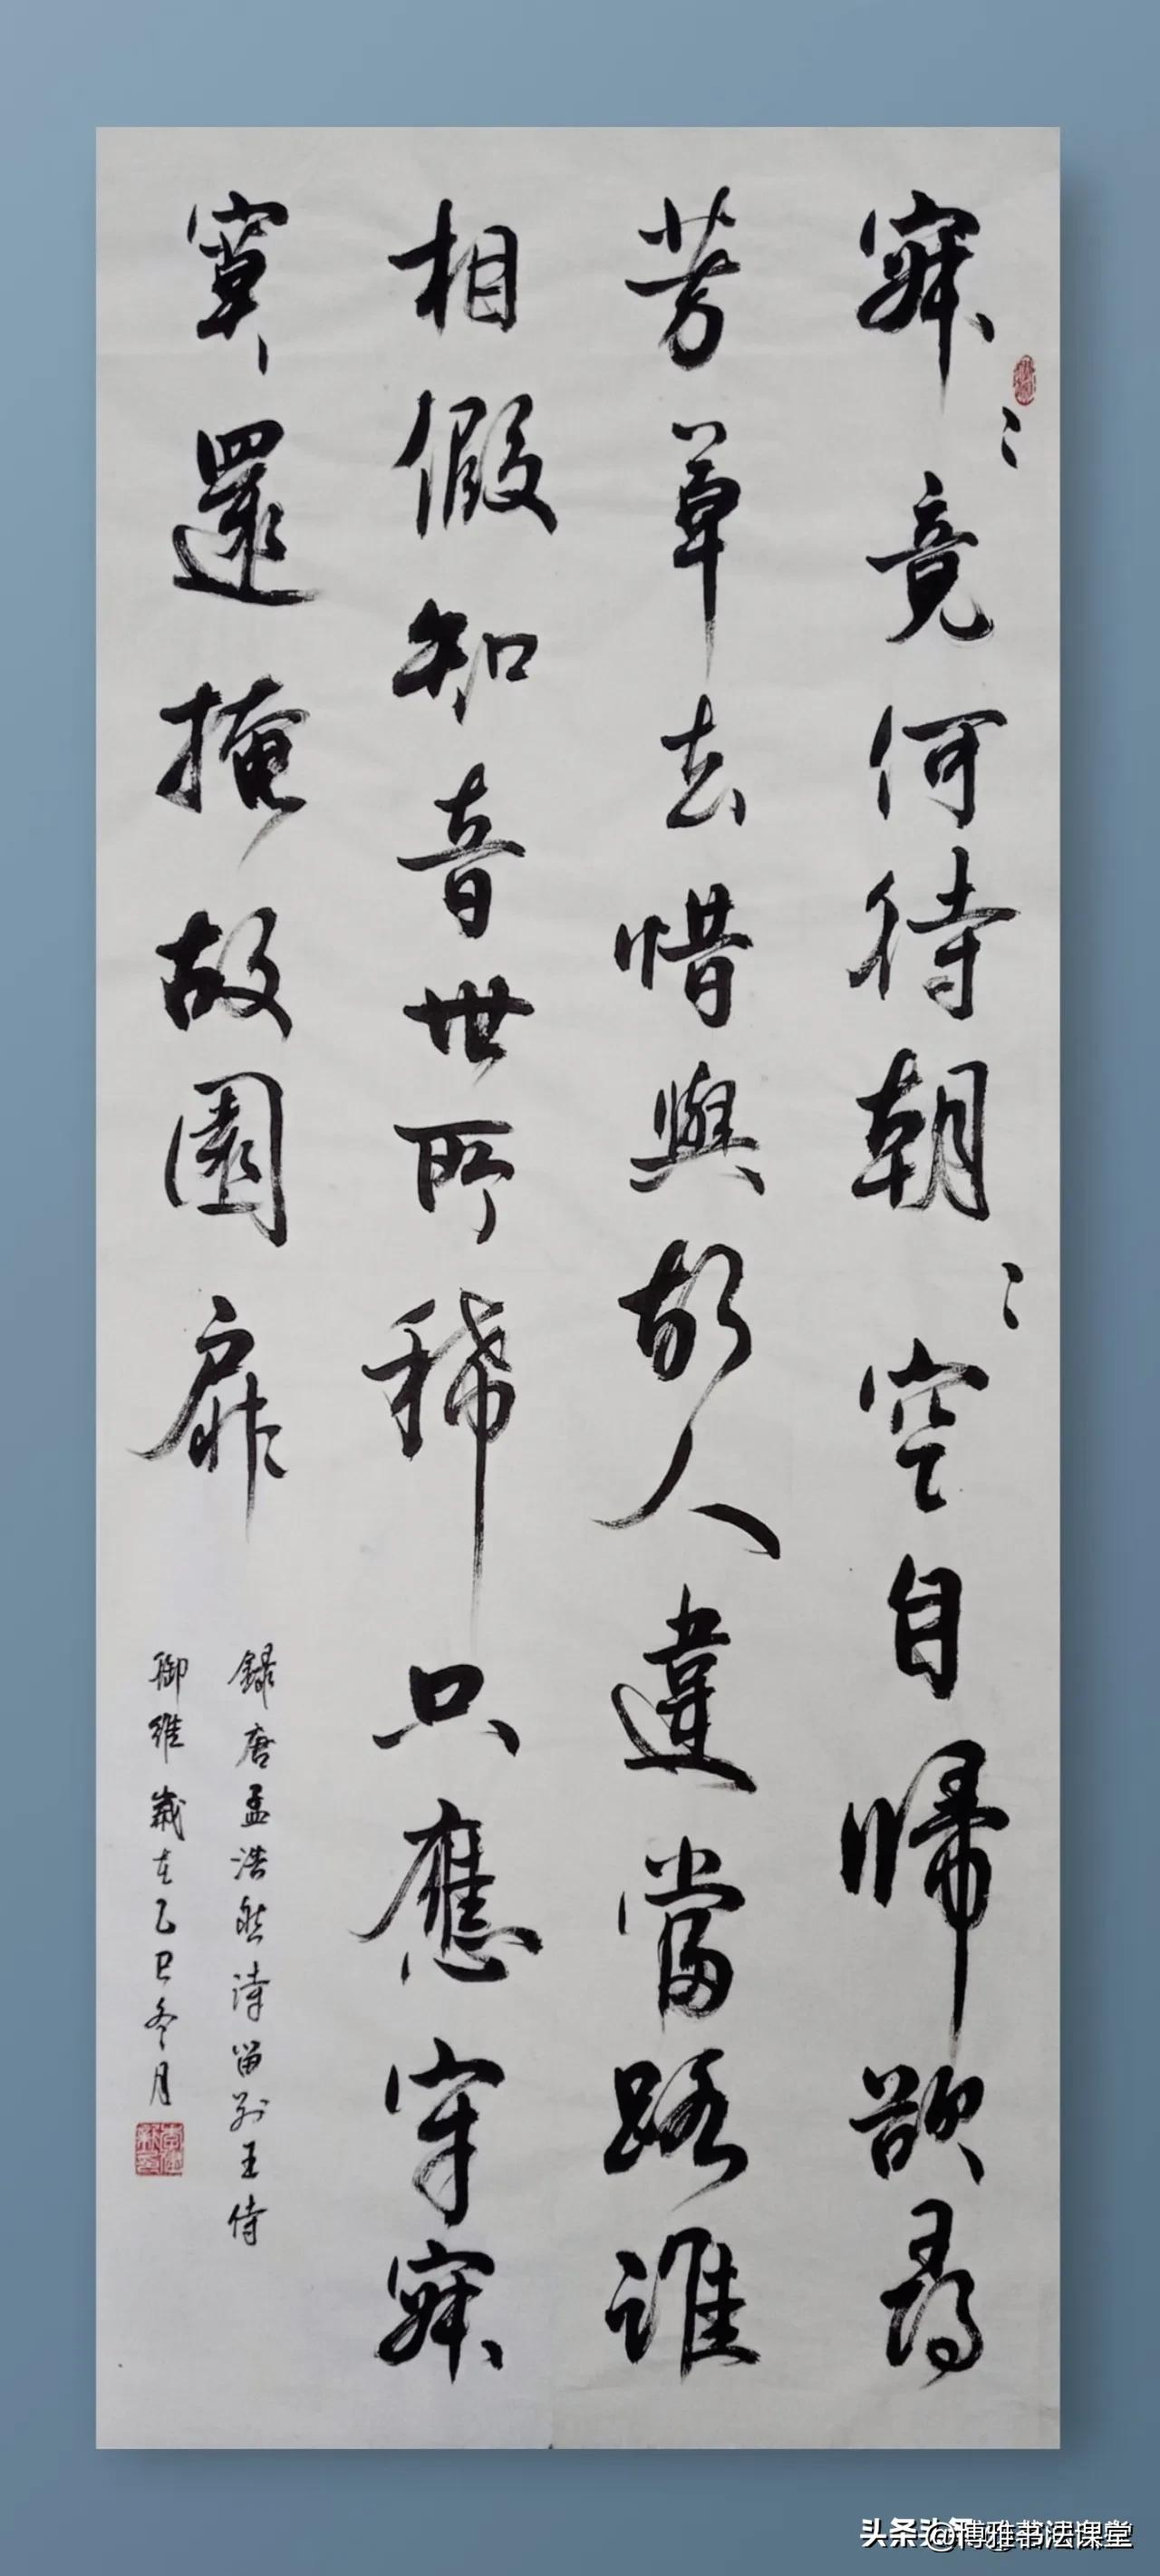 寂〻竟何待朝〻空自歸欲尋
芳草去惜與故人違當路誰
相假知音世所稀只應守寂
寞還掩故園扉
錄唐孟浩然詩留別王侍
御維歲在乙巳冬月
头条 @博雅书法课堂